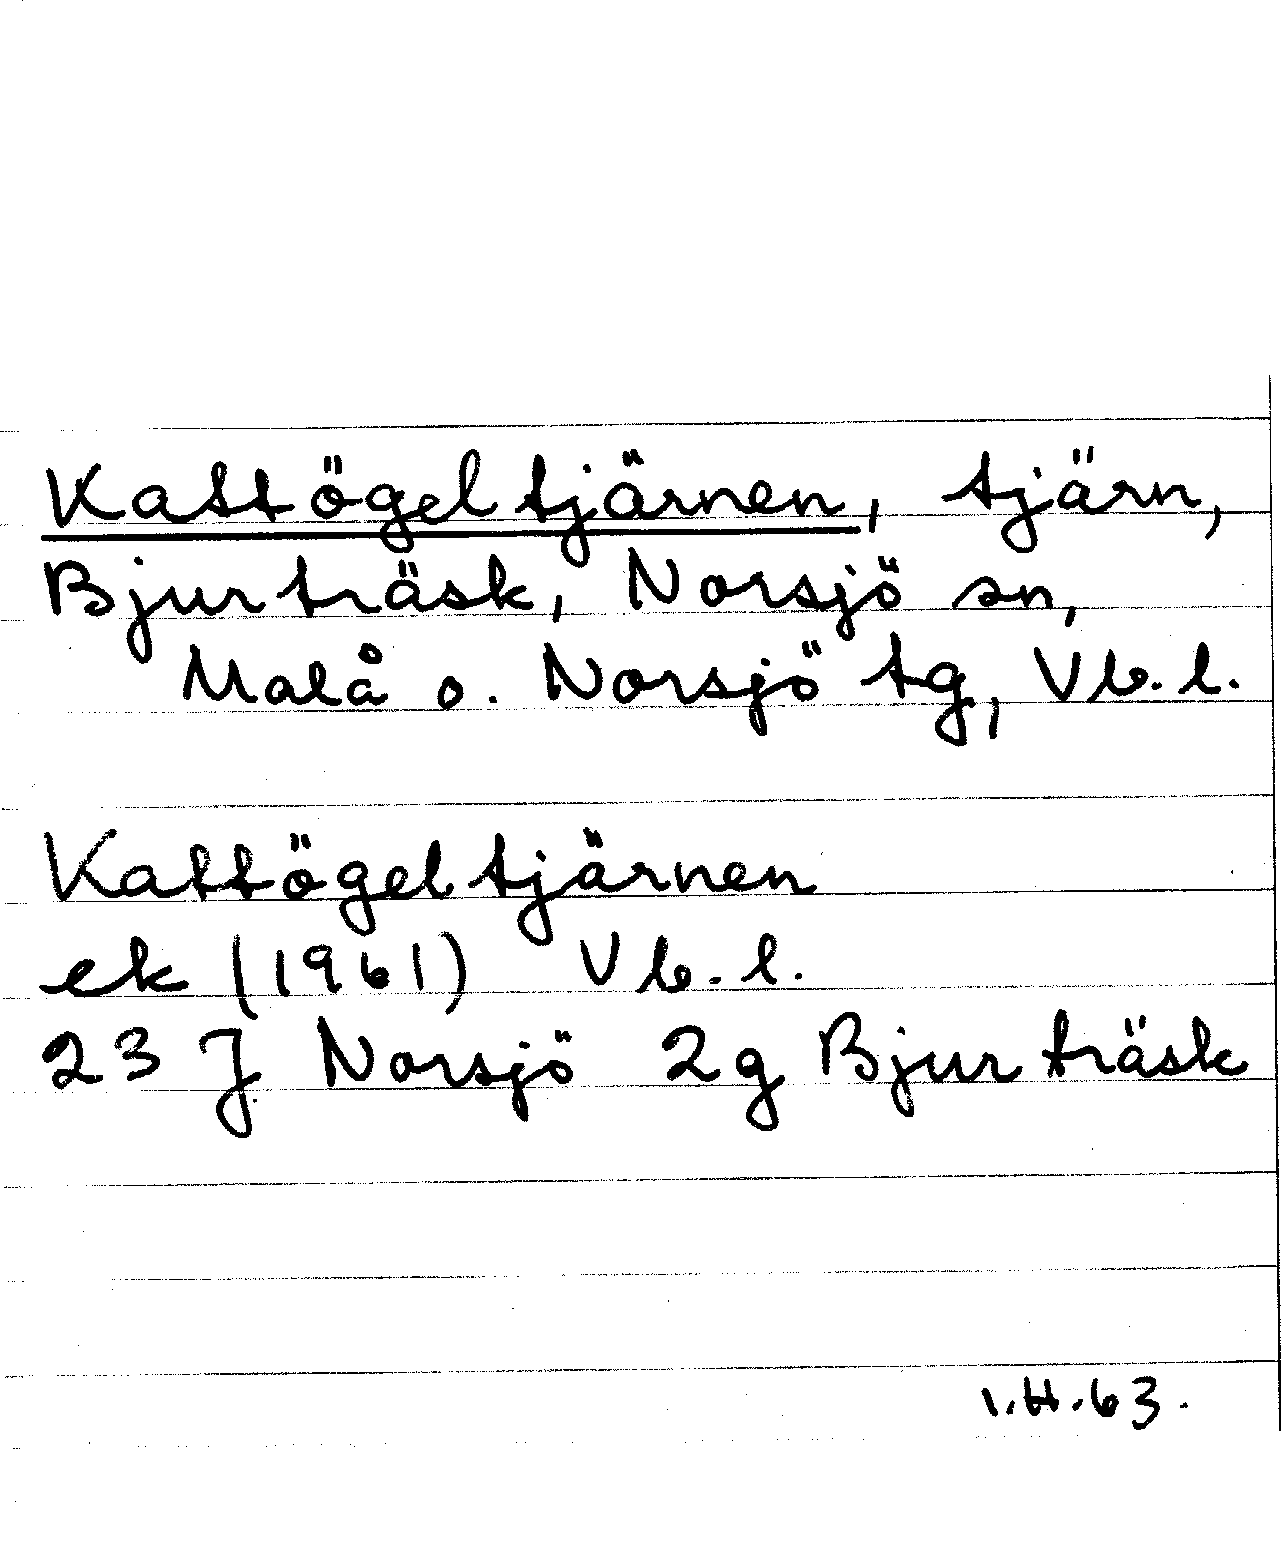 Kattögeltjärnen, tjärn,
Bjurträsk, Norsjö sn,
Malå o. Norsjö tg, Vb. l.
Kattögeltjärnen
ek (1961) Vb. l.
23 J Norsjö 2g Bjurträsk
I.H.63.